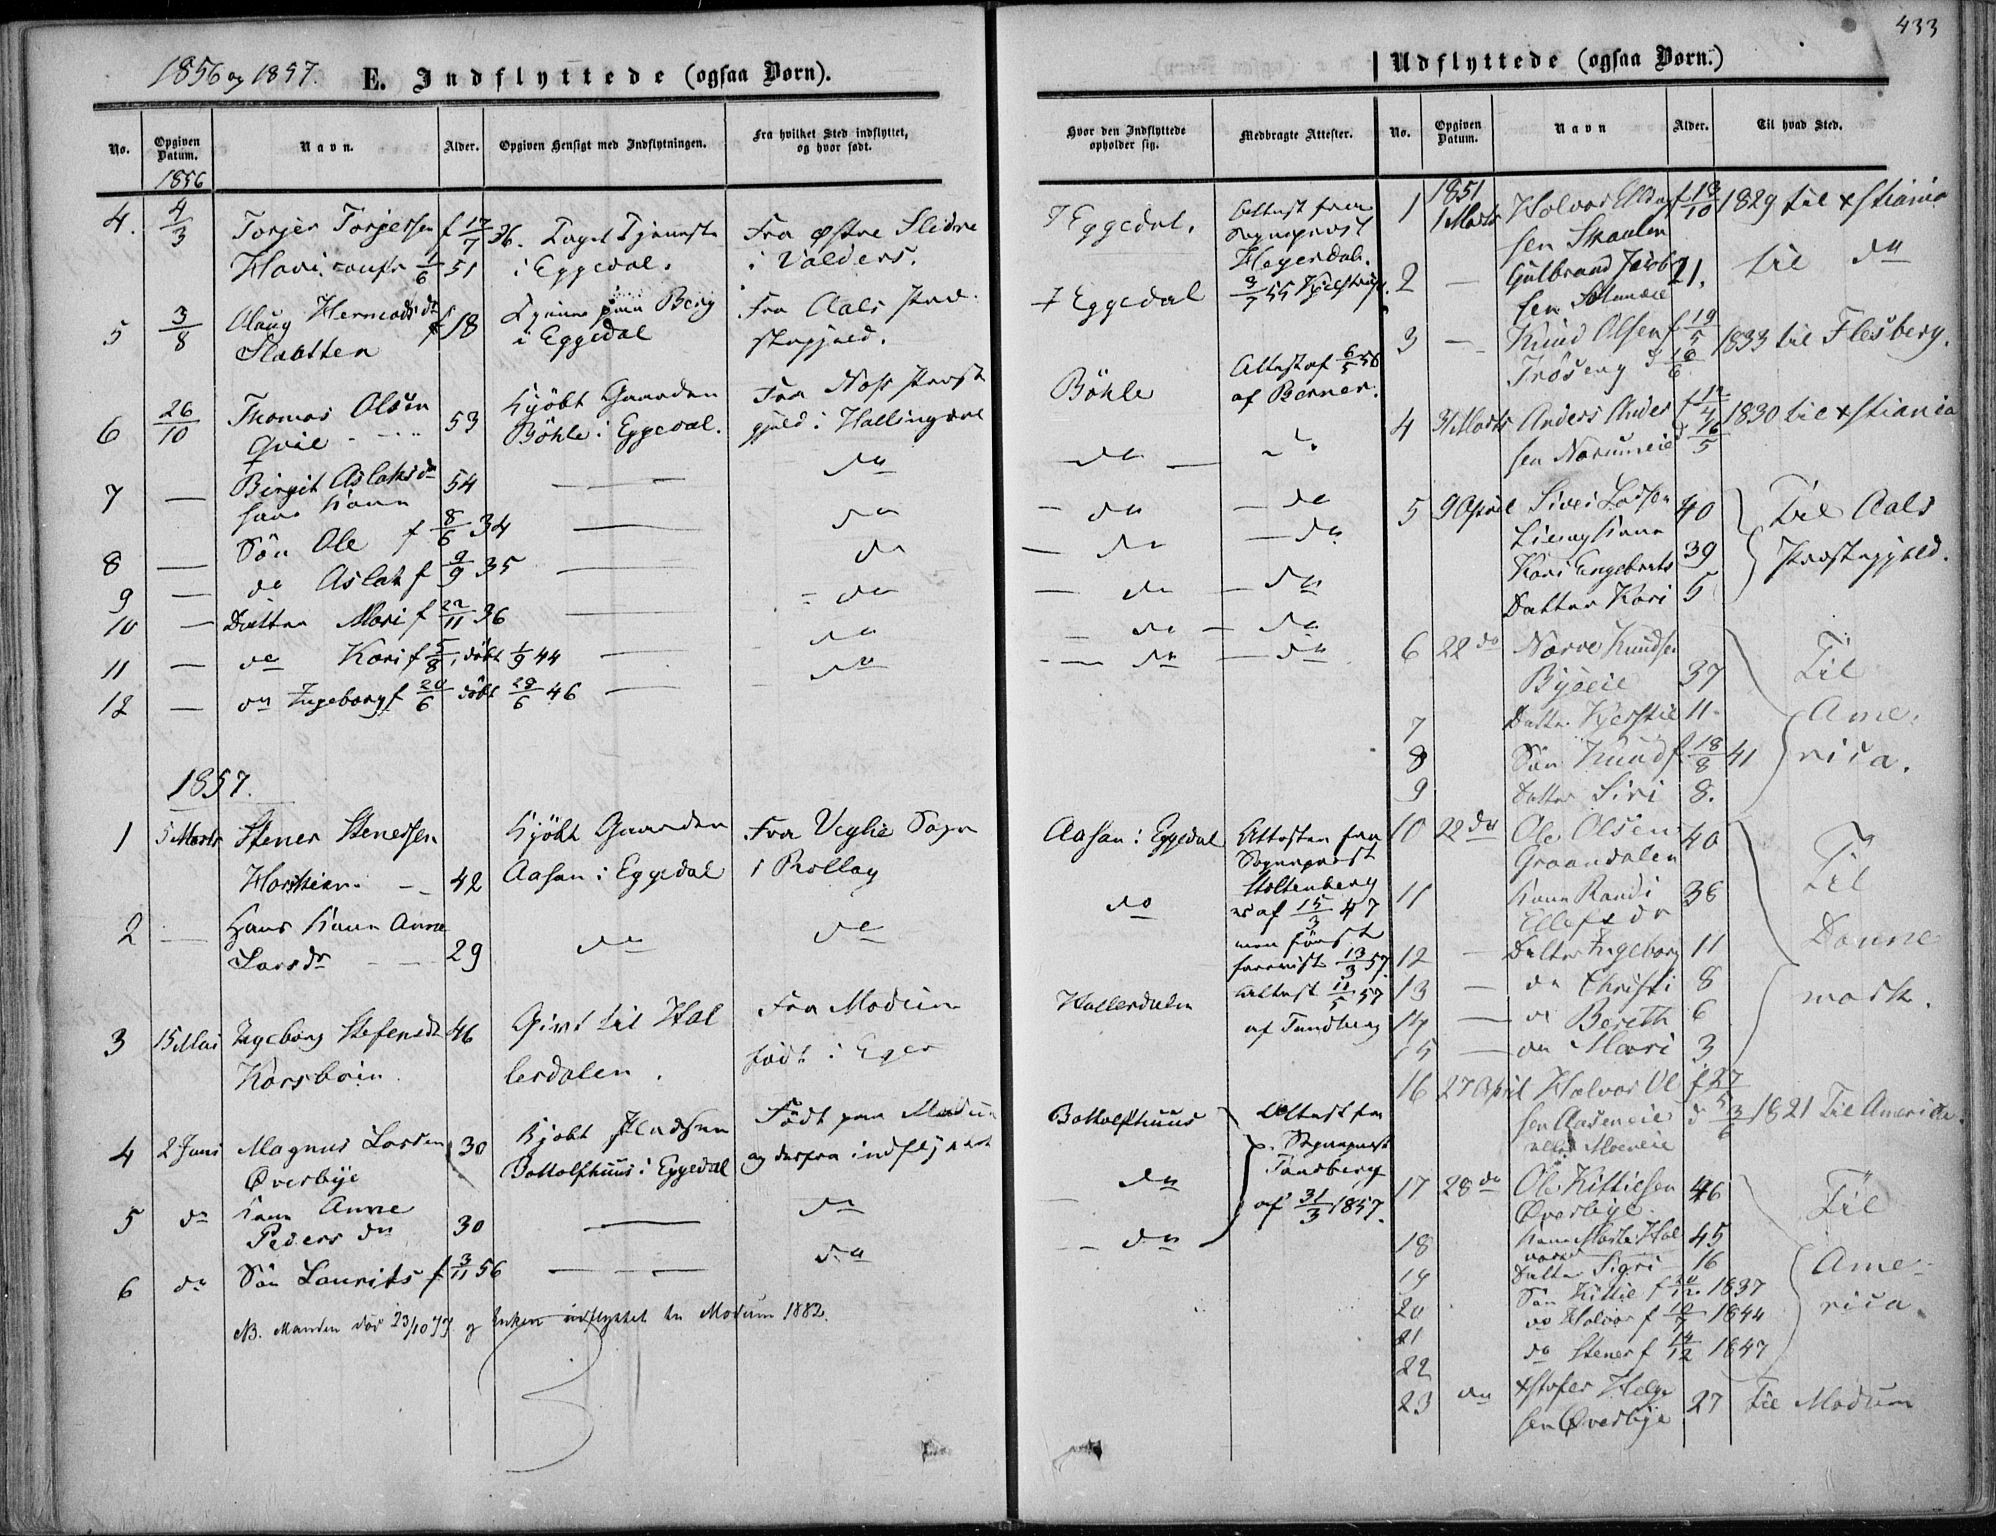 433
1856 og 1857. E. Indflyttede (ogsaa Børn).
No.
Opgiven Datum.
Navn.
Alder.
Opgiven Hensigt med Indflytningen.
Fra hvilket Sted indflyttet, og hvor født.
1856
4. 4/3 Torjer Torjersen f 17/7 36. Taget Tjeneste Fra Østre Slidre
1/6 51 i Eggedal. i Valders.
5 3/8 Olaug Hermods dr f 18 paa Berg Fra Aals Præ-
i Eggedal stegjæld.
6 26/10 Thomas Olsen 53 Kjöbt Gaarden Fra Næss Præst
Qvie Böhle i Eggedal. gjeld i Hallingdal
7 — Birgit Aslaksdr 54 — do
hans Kone
8 — Sön Ole f 8/6 34 — do
9 — do Aslak f 9/9 35 — do
10 — Datter Mari f 22/11 36 — do
11 — do Kari f 5/8, döbt 1/9 44 — do
12 — do Ingeborg f 20/6 döbt 28/6 46 — do
1857.
1 5 Marts Stener Stenersen Kjöbt Gaarden Fra Veglie Sogn
42 Aasan i Eggedal i Rollag
2 — Hans Kone Anne
Larsdr 29 do do
3 15 Mai Ingeborg Stefensdr 46 Givt til Hal Fra Modum
lerdalen. født i Eger
4 2 Juni Magnus Larsen 30 Kjöbt Født paa Modum
Øverbye Bottolfhuus i Eggedal og derfra indflyttet
5 do Kone Anne do
Peders dr 30 —
6 do Sön Laurits f 3/11 56 — do
NB. Manden död 23/10 77 og Enken udflyttet til Modum 1882.
Udflyttede (ogsaa Børn.)
Hvor den Indflyttede opholder sig.
Medbragte Attester.
No.
Opgiven Datum.
Navn
Alder.
Til hvad Sted.
I Eggedal. Attest fra
Sogneprest
I Eggedal
Böhle Attest af 6/5 56
af Berner.
do
do do
do do
do do
do do
do do
Aasan i Eggedal Attester fra
Sogneprest
Stoltenberg
do af 15/3 47
13/3 57
Hallerdalen Attest 11/5 57
af Tandberg
Bottolfhuus Attest fra
Sogneprest
do Tandberg
af 31/3 1857.
do
1851
1 1 Marts Halvor f 13/10 1829 til Xstiania
sen
2 — Gulbrand Jacob 21. til do
sen
3 — Knud Olsen f 19/5 1833 til Flesberg.
16/6
4 31 Marts Anders Ander f 12/4 1830 til Xstiania
sen 16/5
5 9 April Larsen 40 Til Aals
Kone Præstegjeld.
Kari Engebrets 39
Datter Kari 5
6 22 do Narve Knudsen Til
37
7 Datter Kjerstie 11. Ame-
8 Sön Knud f 18/8 41 rica.
9 Datter Siri 8.
10 22 do Ole Olsen 40 Til
Graandalen
11 Kone Randi 38
Ellefsdr Danne
12 — Datter Ingeborg 11
13 — do Christi 8 mark.
14 — do Bereth 6
15 — do Mari 3
16 27 April Halvor Ol f 27/5
sen Aaseneie d 3/6 1821 Til America.
eller Moeneie
17 28 do Ole Kittilsen 46 Til
Øverbye
18 Kone Hal 45
vors
19 Datter Sigri 16 Ame-
20 Sön Kittil f 20/12 1837
21 do Halvor f 10/7 1844 rica.
22 do Stener f 14/12 1847
23 do Xstofer Helge 27 til Modum
sen Øverbye